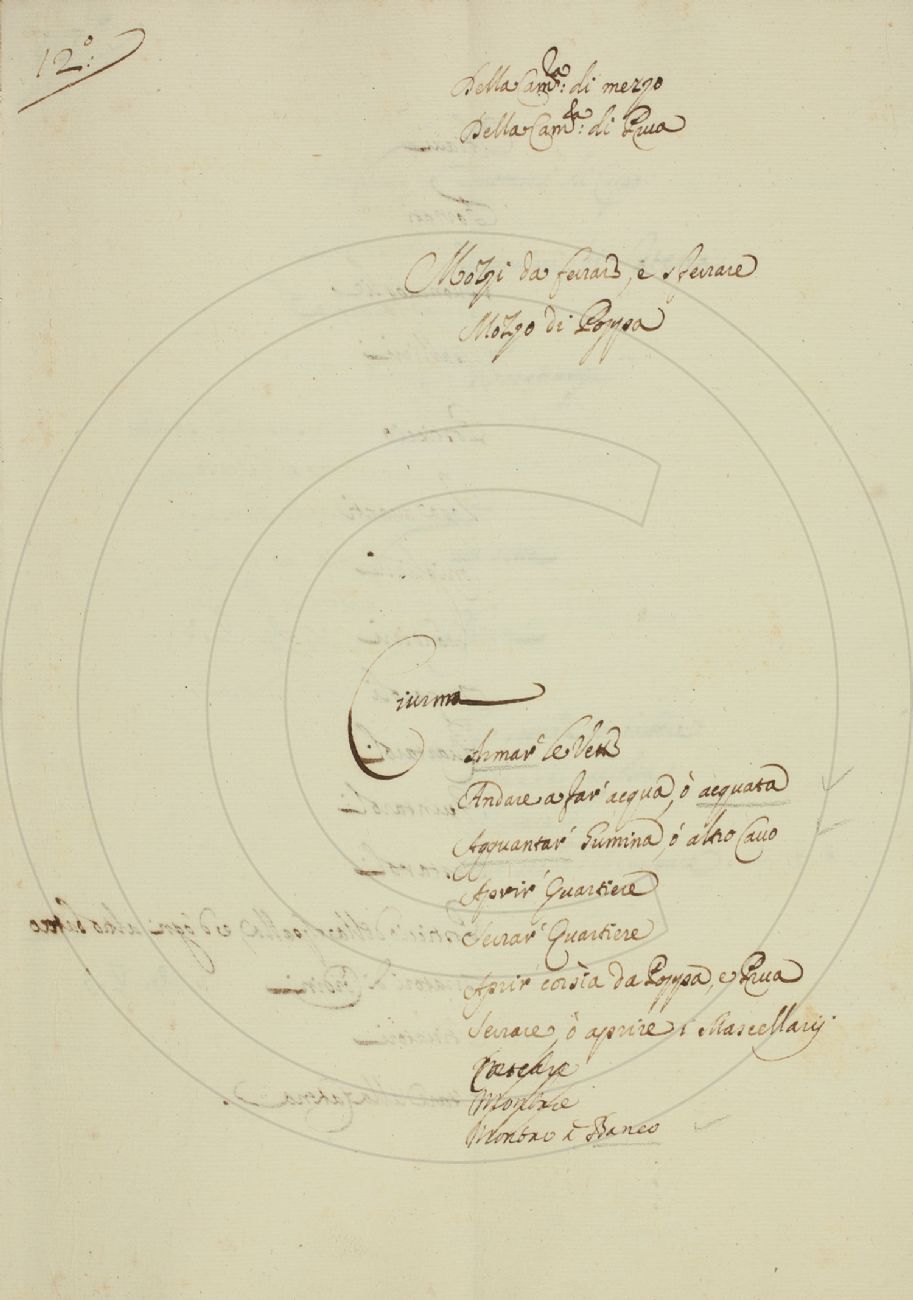 12º:
Della Cam.ra: di mezzo
Della Cam.ra: di Prua
Mozzi da ferrare, e sferrare
Mozzo di Poppa
Ciurma
Armar' le Vele
Andare a far' acqua, ò acquata
Agguantar' Gumina, ò altro Cavo
Aprir' Quartiere
Serrar' Quartiere
Aprir' corsia da Poppa, e Prua
Serrare, ò aprire i Mascellarij
Montare
Montare à Banco